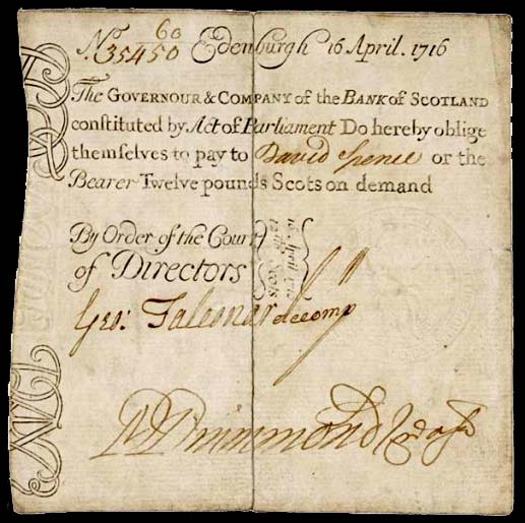 60
No. 35450 Edenburgh 16 April. 1716
The GOVERNOUR & COMPANY of the BANK of SCOTLAND
constituted by Act of Parliament Do hereby oblige
themselves to pay to David Spence or the
Bearer Twelve pounds Scots on demand
By Order of the Court
of Directors
16 April 1716
Geo: Falconar
Drummond